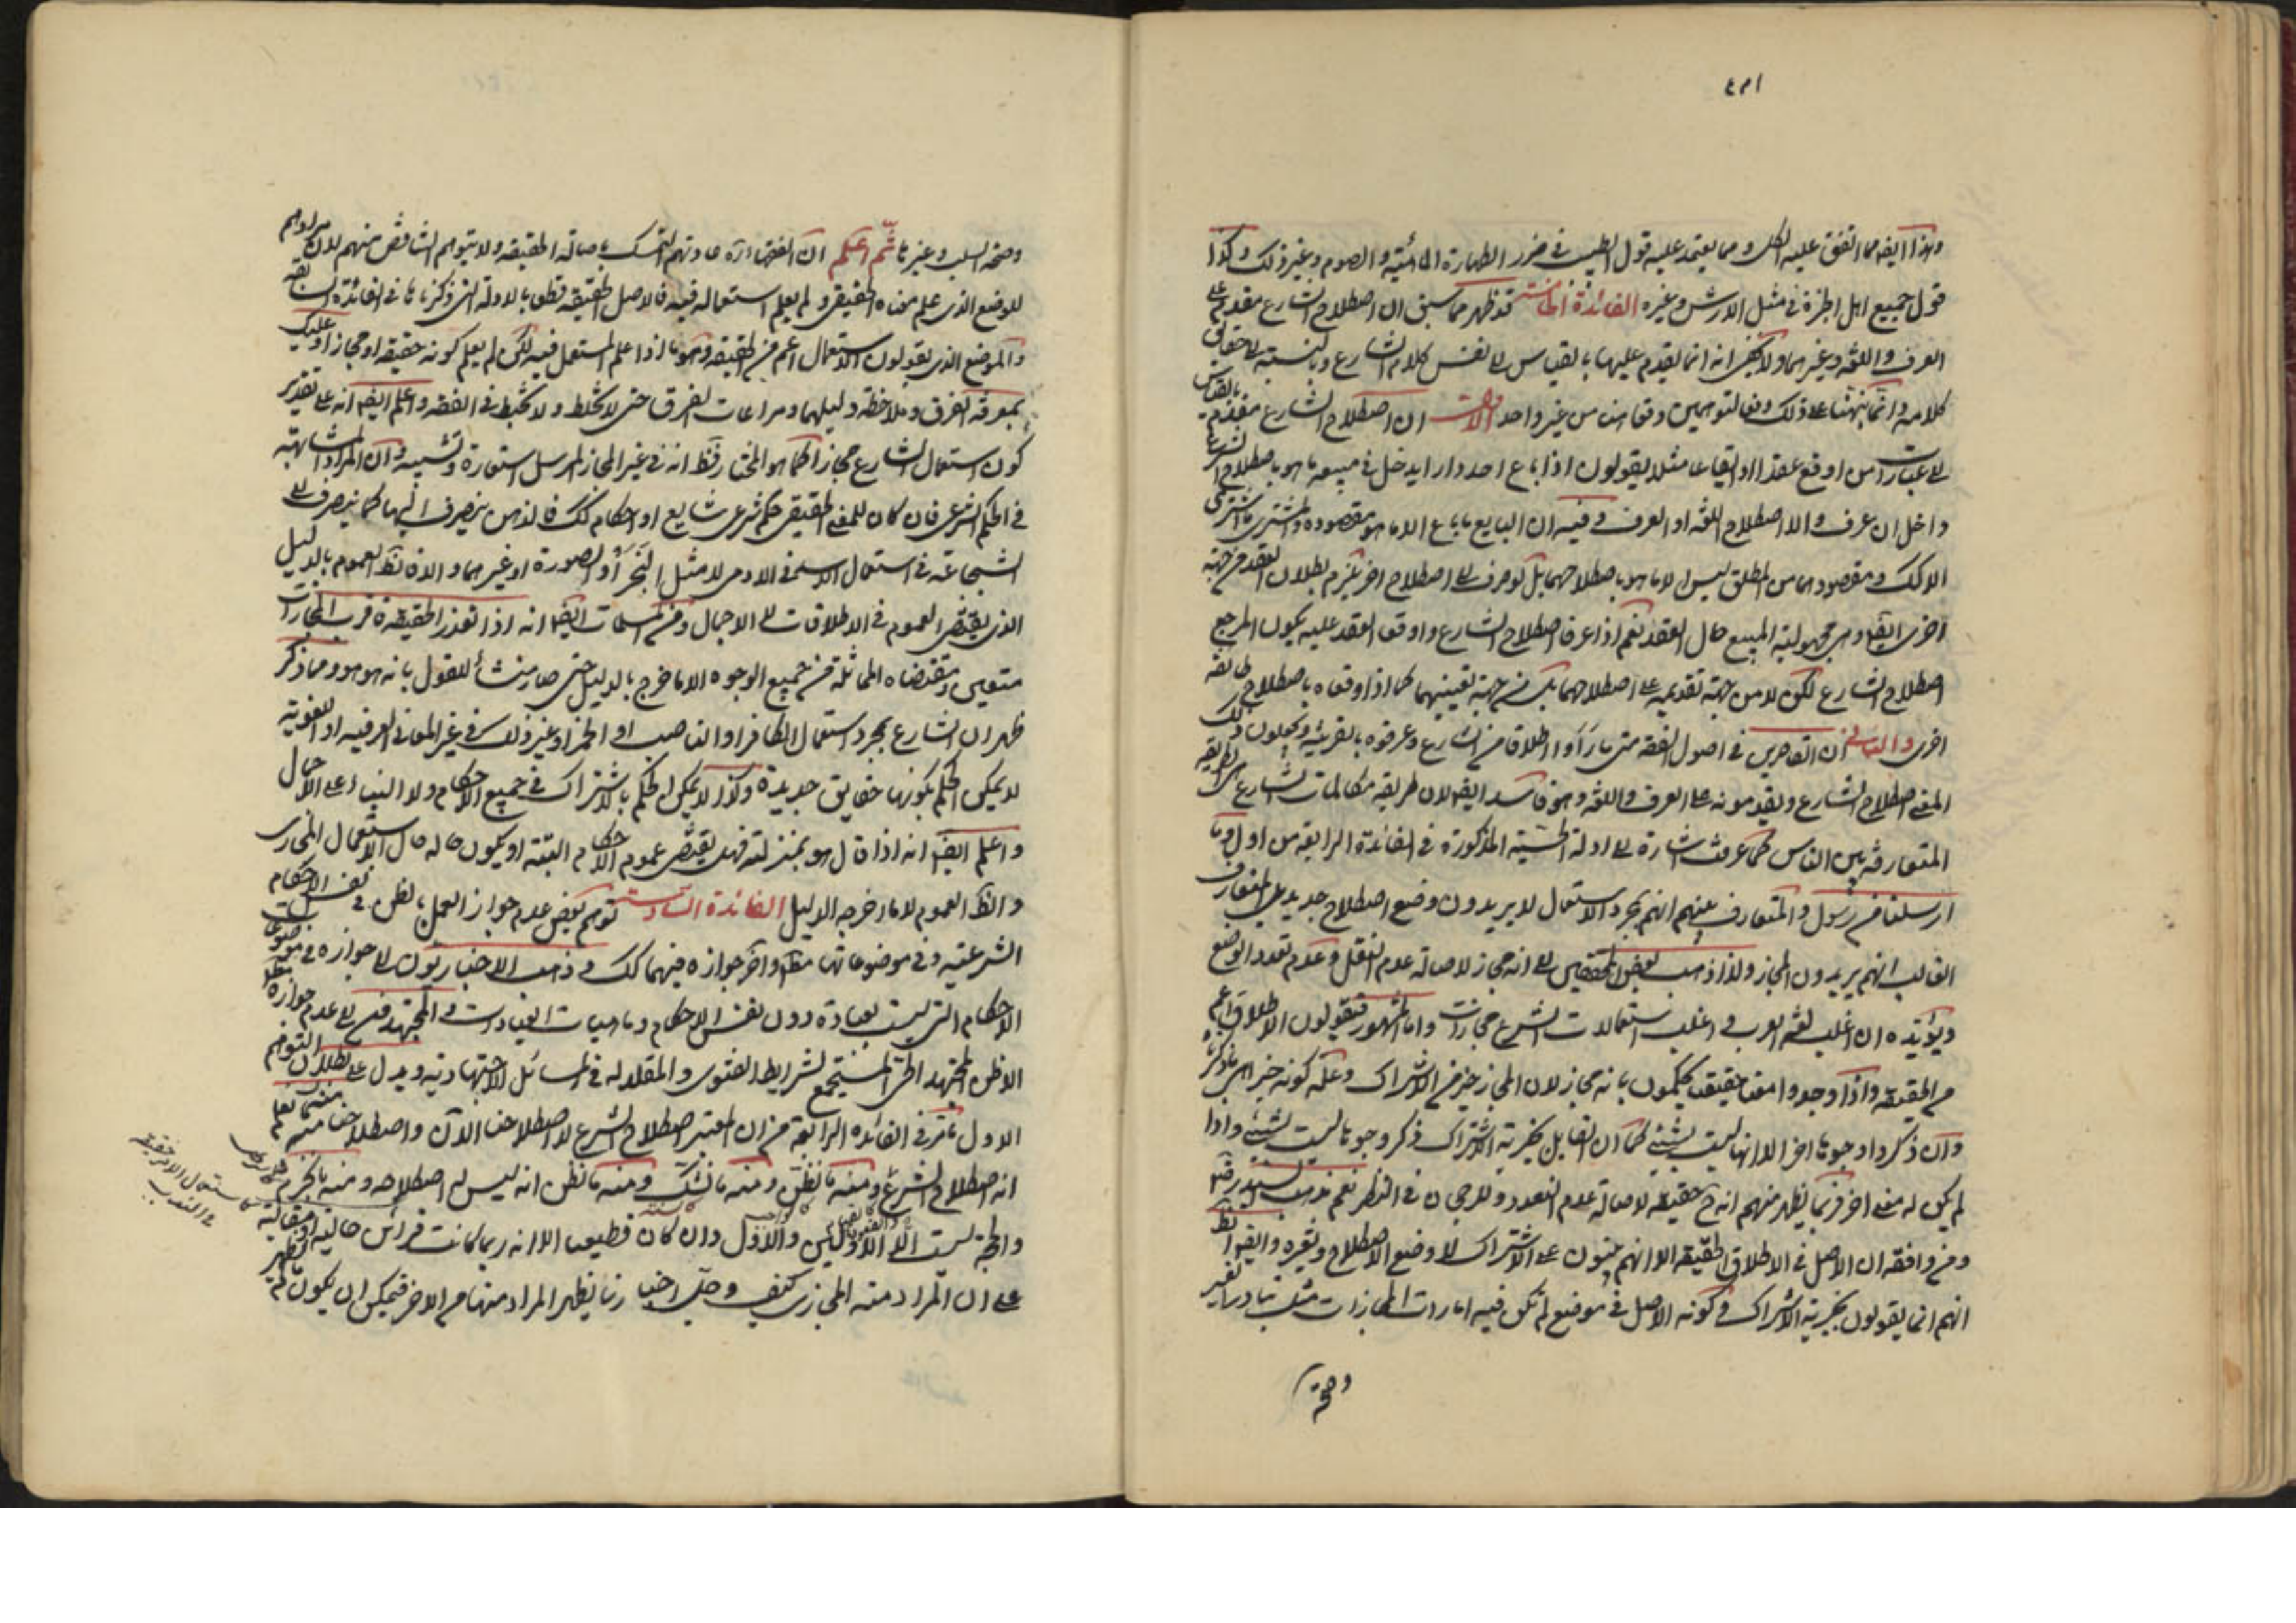 وهذا ايضا مما اتفق عليه الكل ومما يعتمد عليه قول الطبيب في ضرر الطهارة المائية والصوم وغير ذلك وكذا
قول جميع اهل الخبرة في مثل الارش وغيره الفائدة الخامسة قد ظهر مما سبق ان اصطلاح الشارع مقدم على
العرف واللغة وغيرهما ولا يخفى انه انما يقدم عليها بالقياس الى نفس كلام الشارع وبالنسبة الى حقائق
كلامه وانما نبهنا على ذلك دفعا لتوهمين وقعا من غير واحد الاول ان اصطلاح الشارع مقدم بالقياس
الى عبارة من اوقع عقدا او ايقاعا مثلا يقولون اذا باع احد دارا يدخل في مبيعه ما هو باصطلاح الشرع
داخل ان عرف والا اصطلاح اللغة او العرف وفيه ان البايع ما باع الا ما هو مقصوده والمشتري ما اشترى
الا كك ومقصودهما من المطلق ليس الا ما هو باصطلاحهما بل لو صرف الى اصطلاح اخر يلزم بطلان العقد من جهة
اخرى ايضا وهي مجهولية المبيع حال العقد نعم اذا عرفا اصطلاح الشارع واوقعا العقد عليه يكون المرجع
اصطلاح الشارع لكن لا من جهة تقديمه على اصطلاحهما بل من جهة تعيينهما كما اذا اوقعاه باصطلاح طائفة
اخرى والثاني ان القاصرين في اصول الفقه متى ما رأوا اطلاقا من الشارع وعرفوه بالقرينة يجعلون ذلك
المعنى اصطلاح الشارع ويقدمونه على العرف واللغة وهو فاسد ايضا لان طريقة مكالمات الشارع هي الطريقة
المتعارفة بين الناس كما عرفت اشارة الى ادلة الحسية المذكورة في الفائدة الرابعة من اول وما
ارسلنا من رسول والمتعارف بينهم انهم بمجرد الاستعمال لا يريدون وضع اصطلاح جديد بل المتعارف
الغالب انهم يريدون المجاز ولذا ذهب بعض المحققين الى انه مجاز لاصالة عدم النقل وعدم تعدد الوضع
ويؤيده ان اغلب لغة العرب واغلب استعمالات الشرع مجازات واما المشهور فيقولون الاطلاق اعم
من الحقيقة واذا وجدوا معنا حقيقيا يحكمون بانه مجاز لان المجاز خير من الاشتراك وعلة كونه خيرا هي ما ذكرنا
وان ذكروا وجوها اخر الا انها ليست بشيء كما ان القايل بخيرية الاشتراك ذكر وجوها ليست بشيء واذا
لم يكن له معنى اخر فربما يظهر منهم انه ح حقيقة لاصالة عدم التعدد وللرجحان في النظر نعم مذهب السيد رضه
ومن وافقه ان الاصل في الاطلاق الحقيقة الا انهم يبنون على الاشتراك لا وضع الاصطلاح وتغيره وايضا الظ
انهم انما يقولون بخيرية الاشتراك وكونه الاصل في موضع لم تكن فيه امارات المجازات مثل تبادر الغير
وصحة
وصحة السلب وغيرها ثم اعلم ان الفقهاء ره عادتهم التمسك باصالة الحقيقة ولا يتوهم التناقض منهم لان مرادهم
للوضع الذي علم معناه الحقيقي ولم يعلم استعماله فيه فالاصل الحقيقة قطعا بالادلة التي ذكرناها في الفائدة السابقة
والموضع الذي يقولون الاستعمال اعم من الحقيقة وهو ما اذا علم المستعمل فيه لكن لم يعلم كونه حقيقة او مجازا وعليك
بمعرفة الفرق وملاحظة دليلهما ومراعات الفرق حتى لا تخلط ولا تخبط في الفقه واعلم ايضا انه على تقدير
كون استعمال الشارع مجازا كما هو المختار فظ انه في غير المجاز المرسل استعارة وتشبيه وان المراد المشابهة
في الحكم الشرعي فان كان للمعنى الحقيقي حكم شرعي شايع او احكام كك فالذهن ينصرف اليها كما ينصرف الى
الشجاعة في استعمال الاسد في الادمي لا مثل البخر او الصورة او غيرهما والا فالظ العموم بالدليل
الذي يقتضي العموم في الاطلاقات لا الاجمال ومن المسلمات ايضا انه اذا تعذر الحقيقة فاقرب المجازات
متعين ومقتضاه المماثلة من جميع الوجوه الا ما خرج بالدليل حتى صار منشأ للقول بانه هو هو ومما ذكر
ظهر ان الشارع بمجرد استعمال الكافر او الناصب او الخمر او غير ذلك في غير المعاني العرفية او اللغوية
لا يمكن الحكم بكونها حقايق جديدة وكذا لا يمكن الحكم بالاشتراك في جميع الاحكام ولا البناء على الاجمال
واعلم ايضا انه اذا قال هو بمنزلته فهل يقتضي عموم الاحكام البتة او يكون حاله حال الاستعمال المجازى
والظ العموم الا ما اخرجه الدليل الفائدة السادسة توهم بعض عدم جواز العمل بالظن في نفس الاحكام
الشرعية وفي موضوعاتها مطا واخر جوازه فيهما كك وذهب الاخباريون الى جوازه في موضوعات
الاحكام التي ليست بعبادة دون نفس الاحكام وماهيات العبادات والمجتهدون الى عدم جوازه الا
الا ظن المجتهد الحي المستجمع لشرايط الفتوى والمقلد له في المسائل الاجتهادية ويدل على بطلان التوهم
الاول ما مر في الفائدة الرابعة من ان المعتبر اصطلاح الشرع لا اصطلاحنا الان واصطلاحنا منه ما نعلم
انه اصطلاح الشرع ومنه ما نظن ومنه ما نشك ومنه ما نظن انه ليس له اصطلاحه ومنه ما نجزم
والحجة ليست الا الاولين والاول وان كان قطعيا الا انه ربما كانت قرائن حالية او مقالية
على ان المراد منه المجازى كيف وجل اخبارنا يظهر المراد منها من الاخر فيمكن ان يكون لم يظهر
كاستعمال الامر حقيقة
في الندب